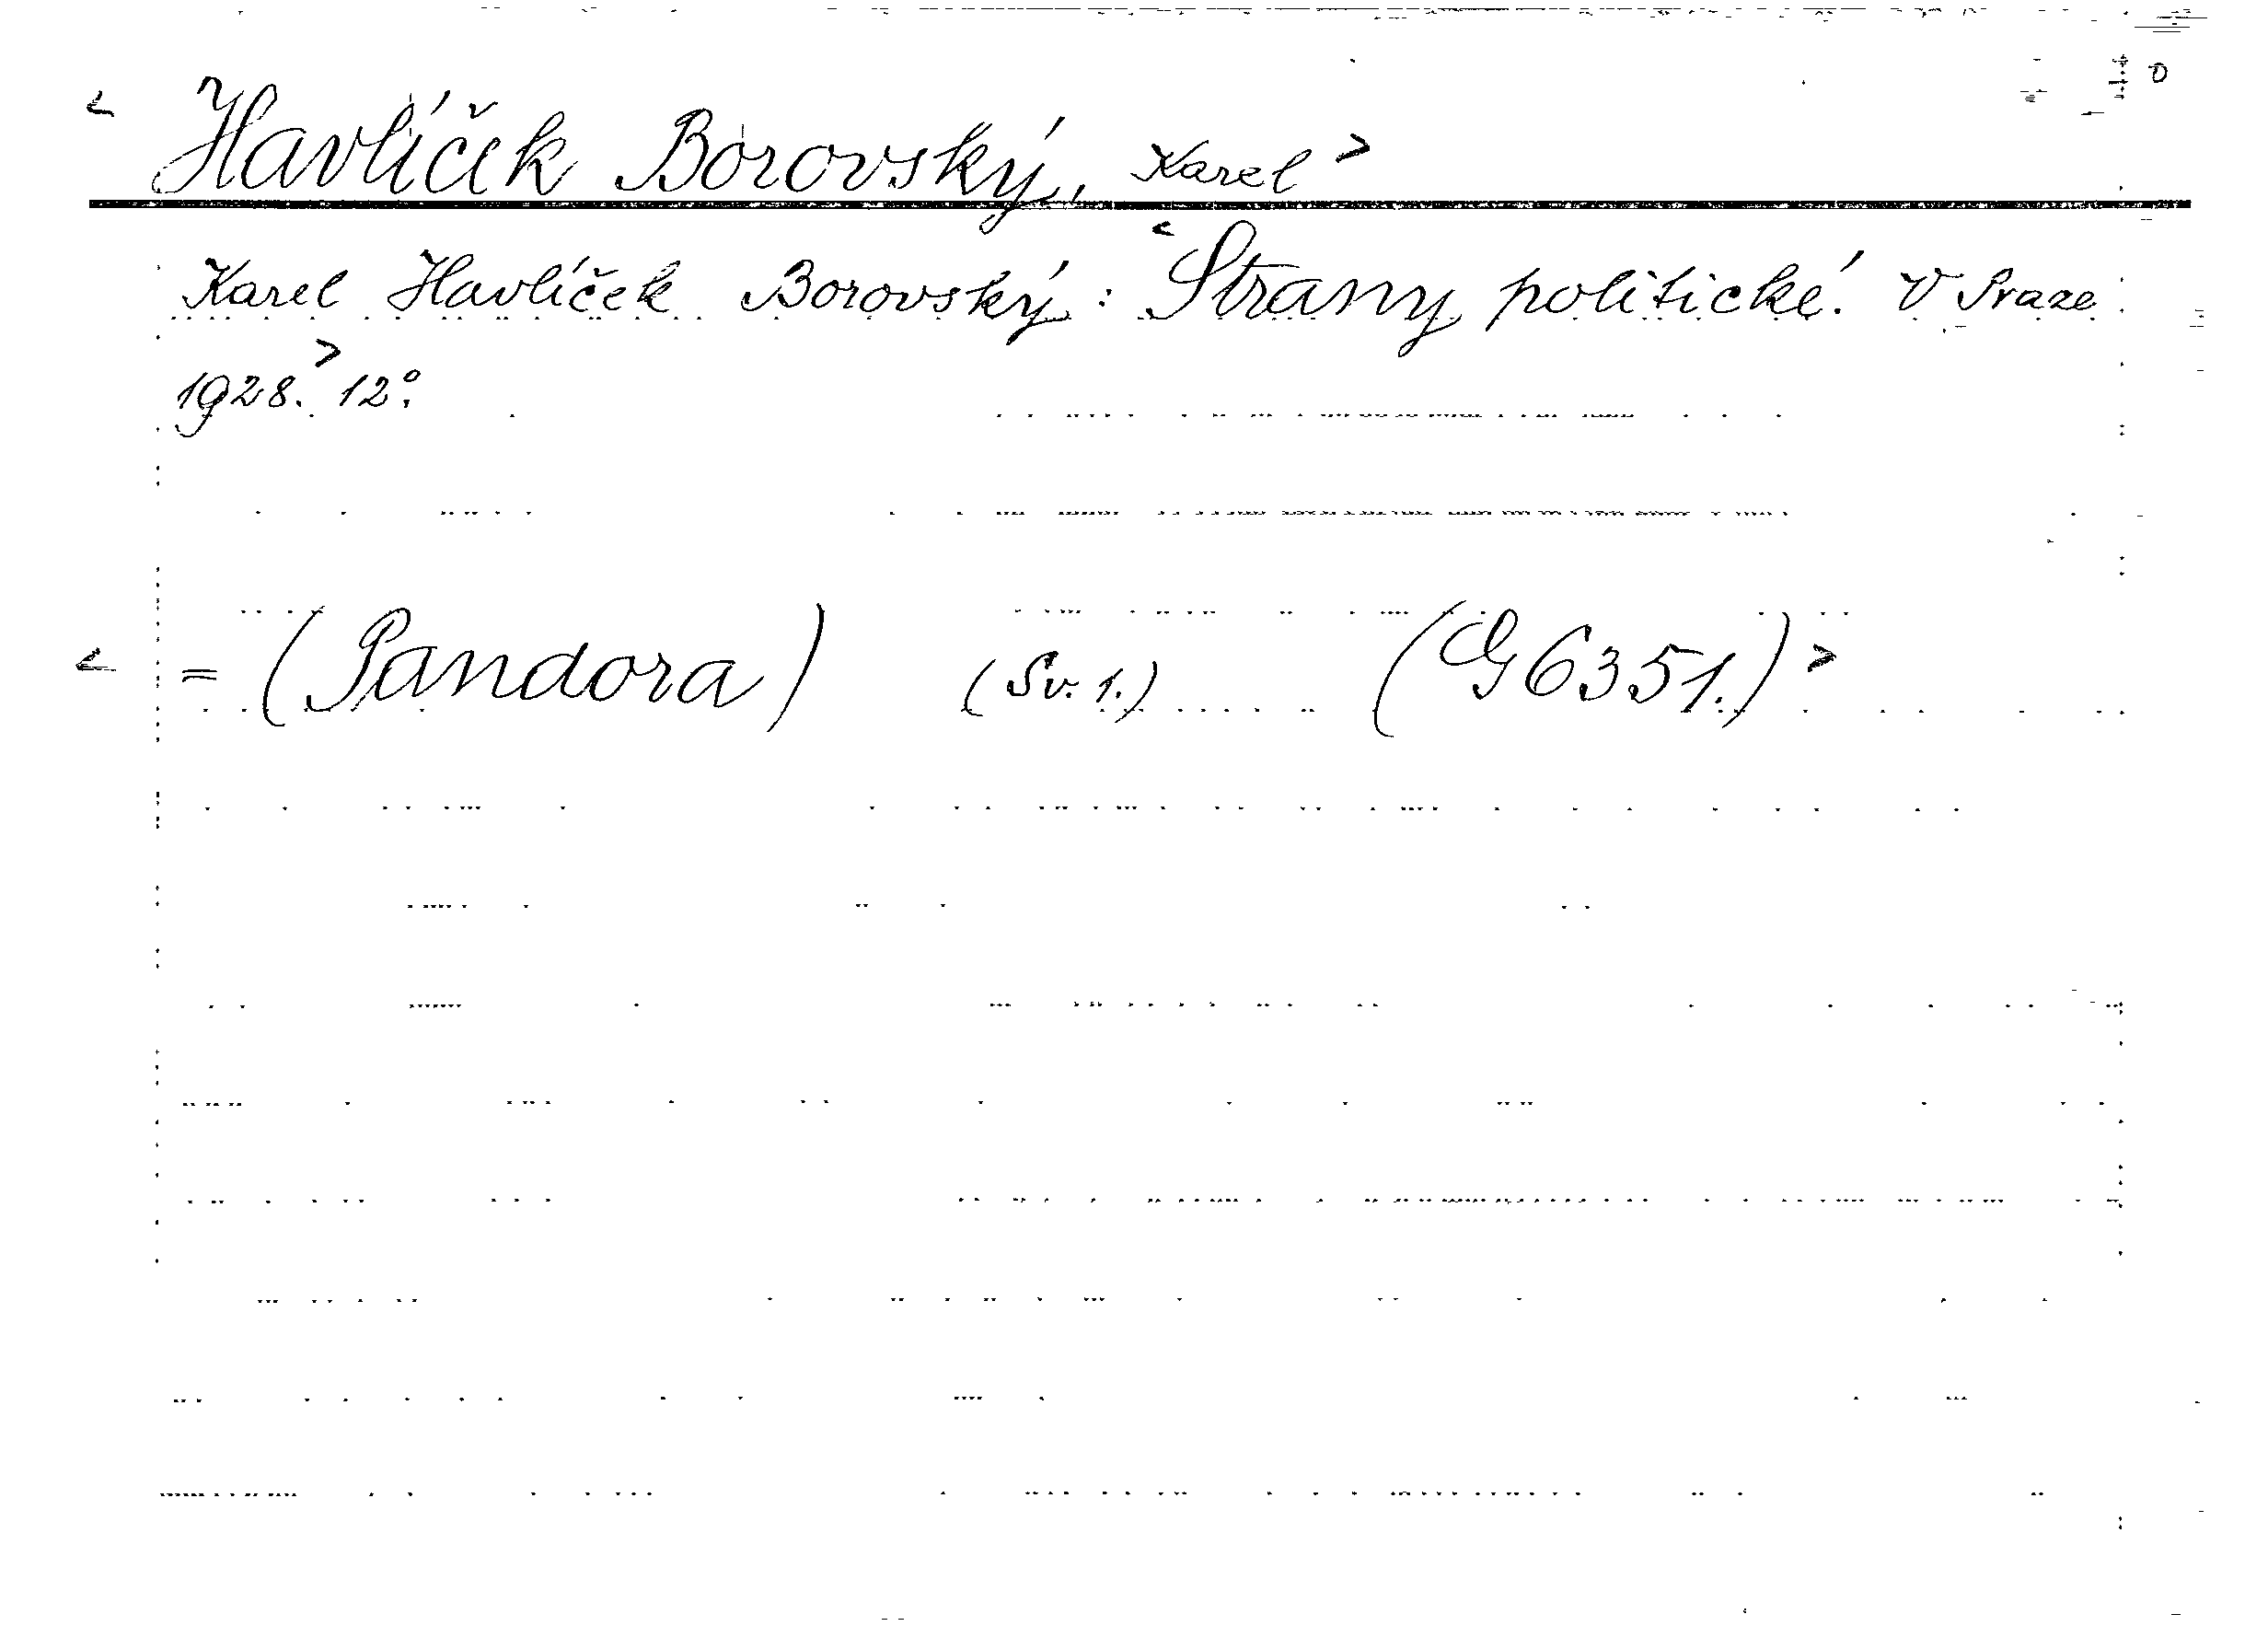 < Havlíček Borovský, Karel >
Karel Havlíček Borovský: < Strany politické. V Praze
1928. > 12°.
< = (Pandora) (Sv. 1.) (G 6351.) >